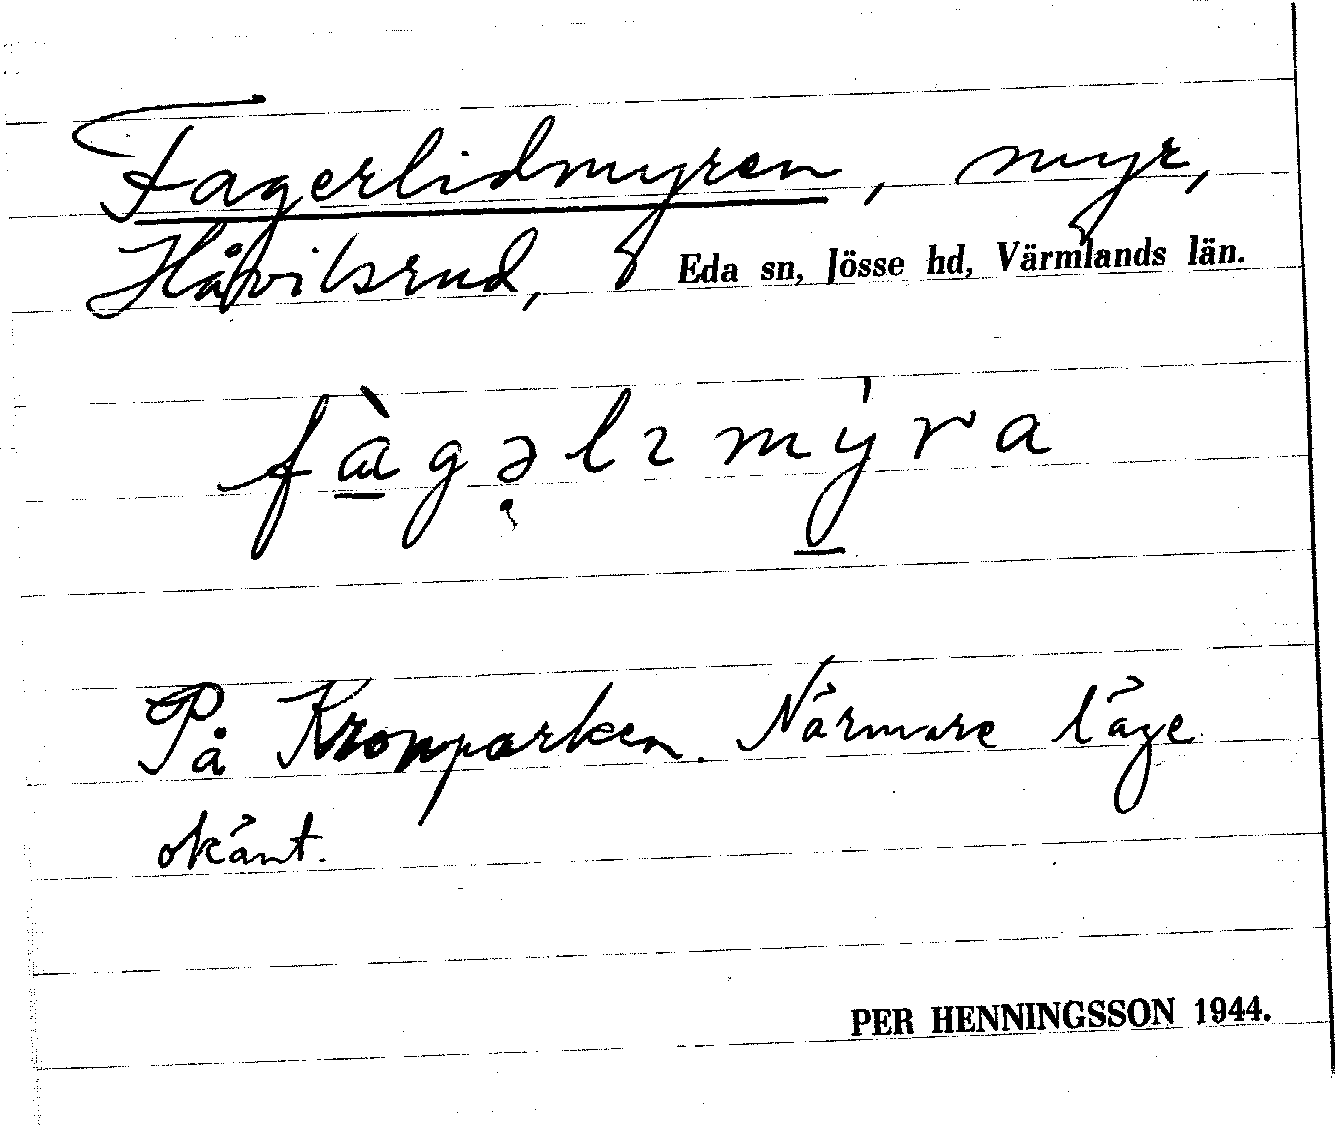 Fagerlidmyren, myr,
Håvilsrud, Eda sn, Jösse hd, Värmlands län.
fàgəlımýra
På Kronparken. Närmare läge
okänt.
PER HENNINGSSON 1944.